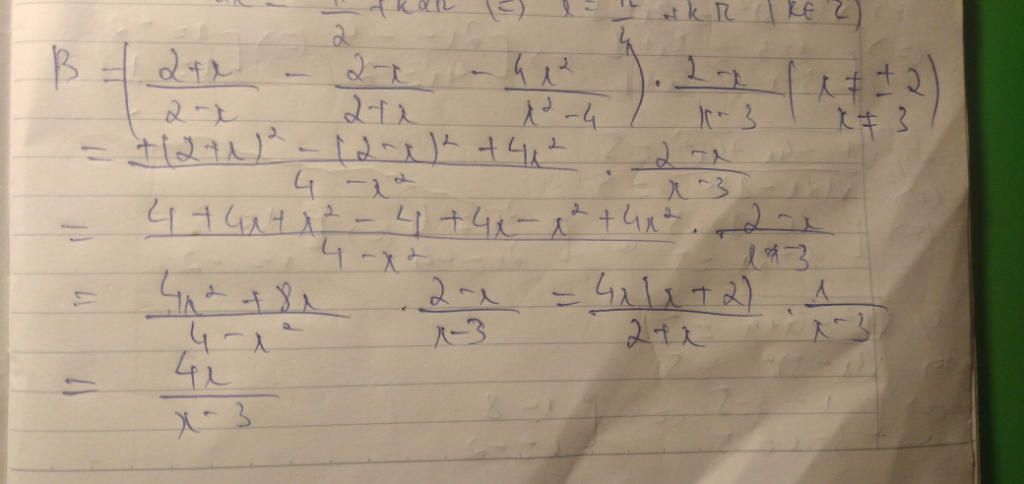 = π/2 + k2π (=) x = π/4 + kπ (k∈Z)
B = ( (2+x)/(2-x) - (2-x)/(2+x) - 4x²/(x²-4) ) · (2-x)/(x-3) ( x ≠ ±2 x ≠ 3 )
= (+(2+x)² - (2-x)² + 4x²)/(4-x²) · (2-x)/(x-3)
= (4+4x+x² - 4 + 4x - x² + 4x²)/(4-x²) · (2-x)/(x-3)
= (4x² + 8x)/(4-x²) · (2-x)/(x-3) = 4x(x+2)/(2+x) · 1/(x-3)
= 4x/(x-3)